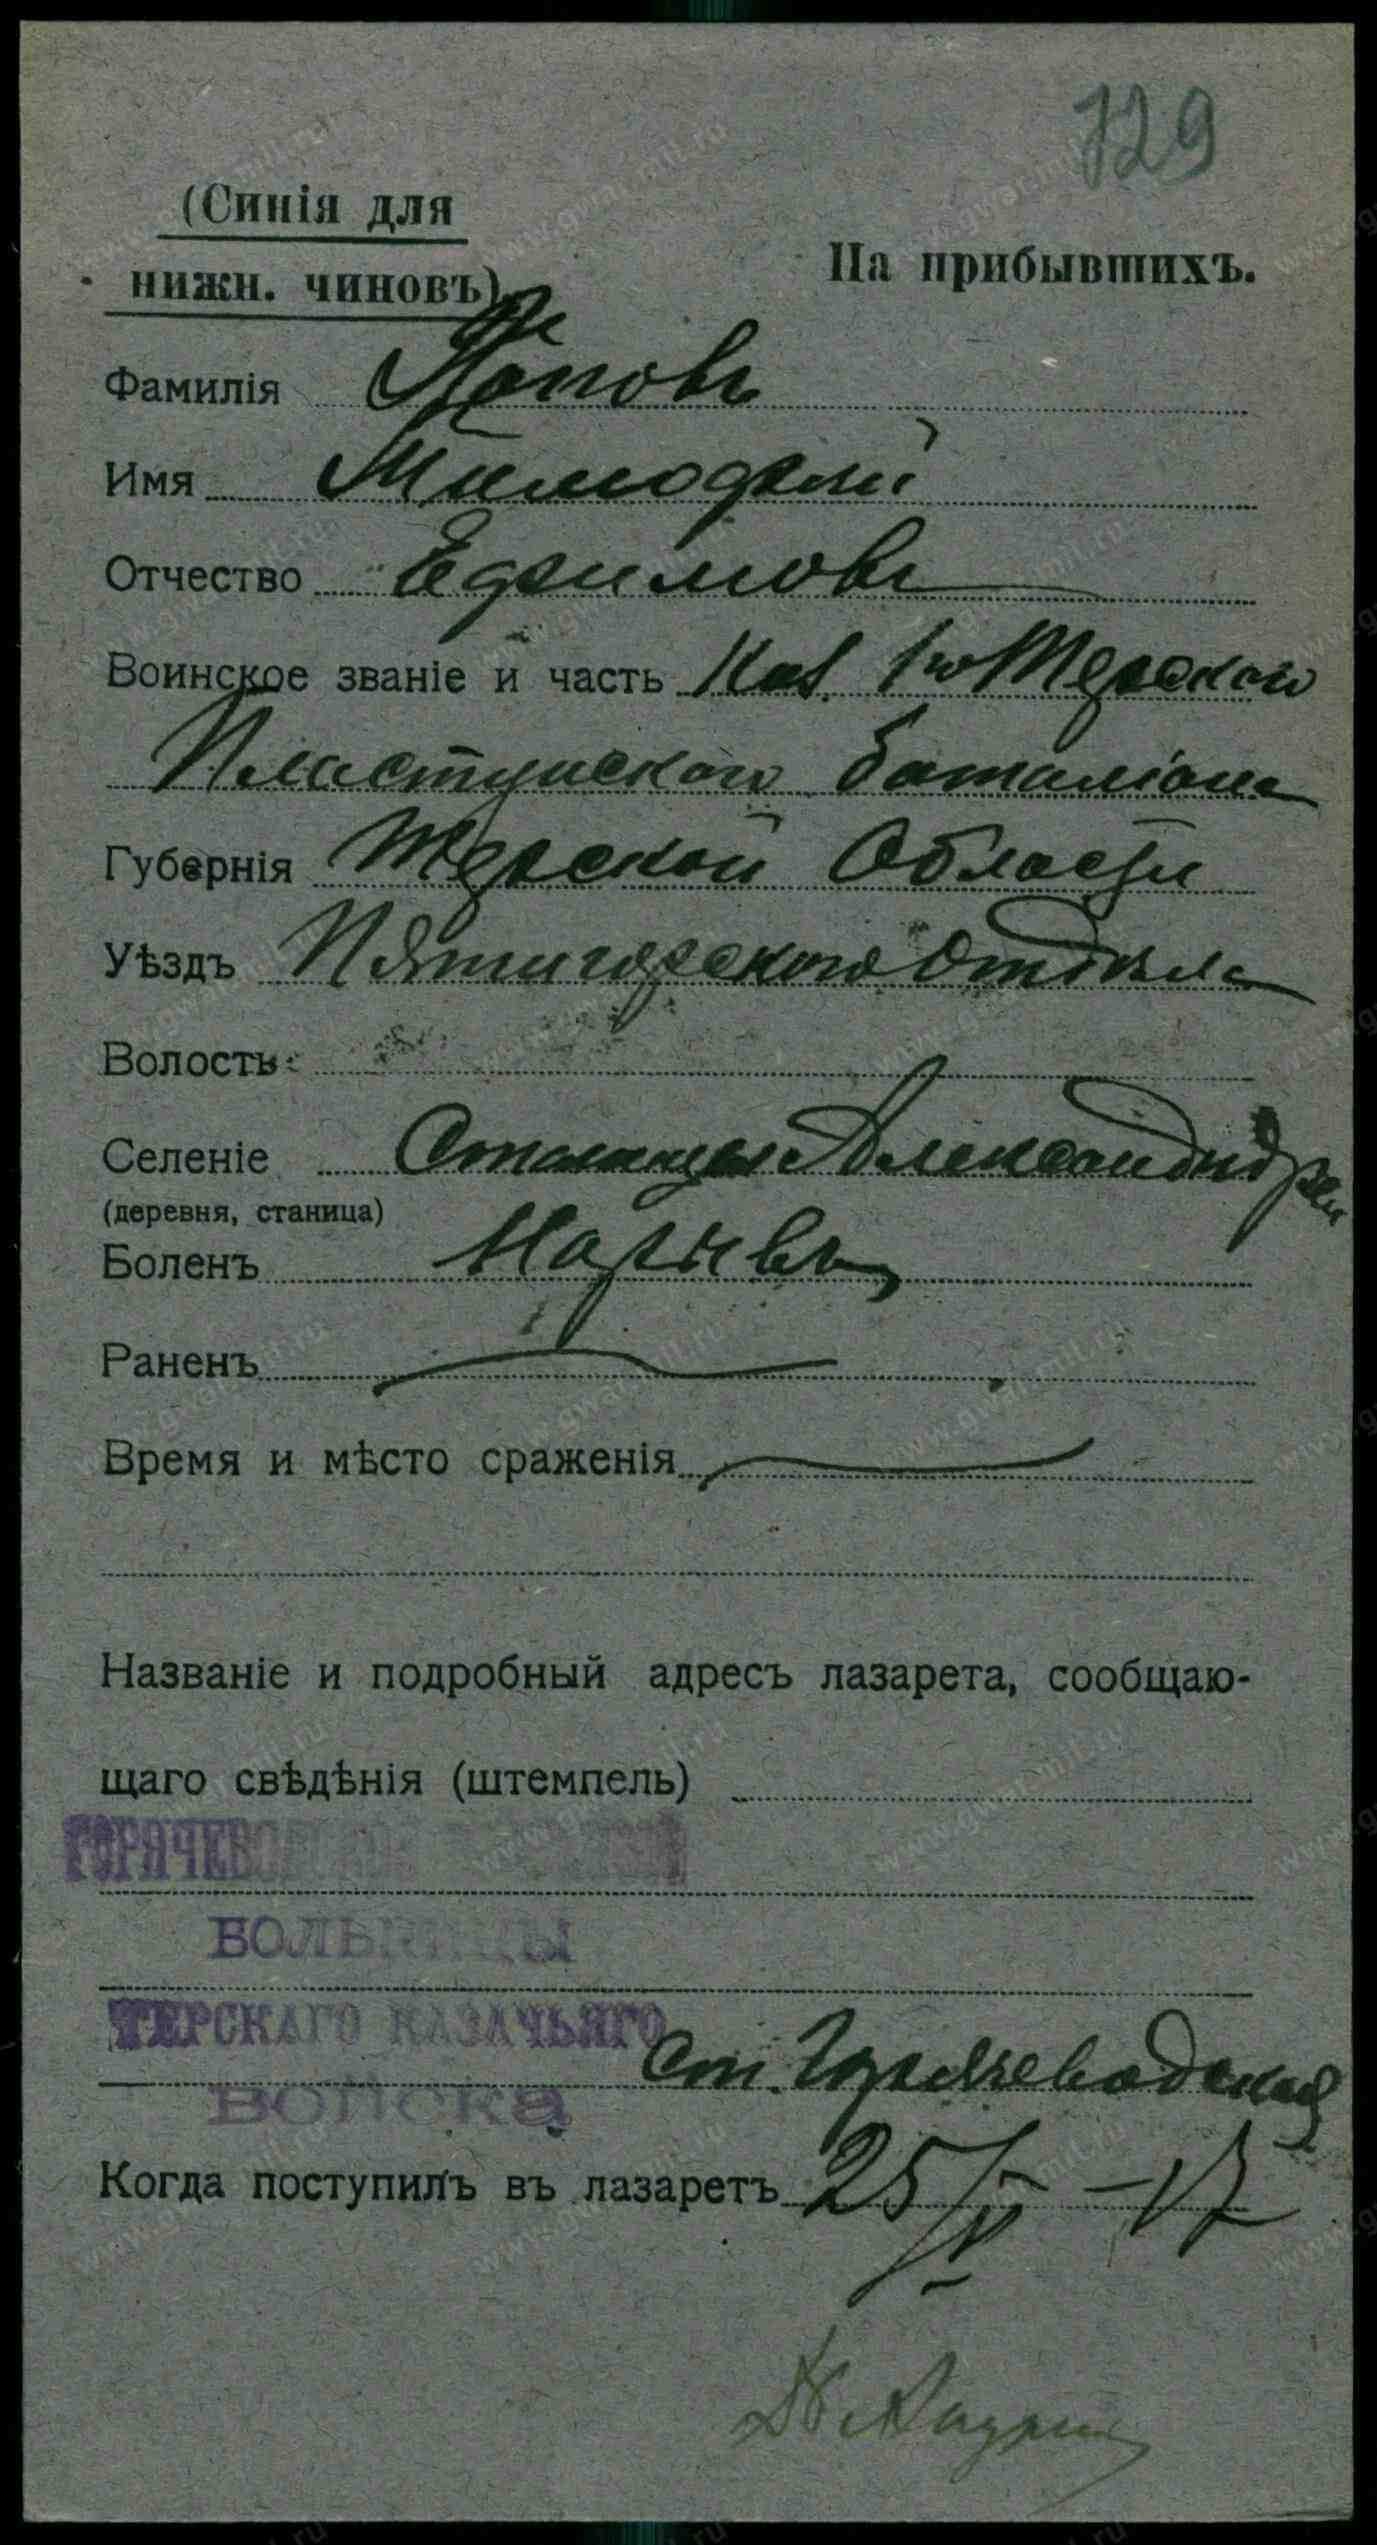 729
(Синія для
нижн. чиновъ)
На прибывшихъ.
Фамилія Поповъ
Имя Тимофей
Отчество Ефимовъ
Воинское званіе и часть Каз. 1го Терскаго
Пластунскаго баталіона
Губернія Терской Области
Уѣздъ Пятигорскаго Отдѣла
Волость
Селеніе Станицы
(деревня, станица)
Боленъ Нарывъ
Раненъ
Время и мѣсто сраженія
Названіе и подробный адресъ лазарета, сообщаю-
щаго свѣдѣнія (штемпель)
БОЛЬНИЦЫ
ТЕРСКАГО КАЗАЧЬЯГО
ВОЙСКА
ст. Горячеводская
Когда поступилъ въ лазаретъ 25/V -17